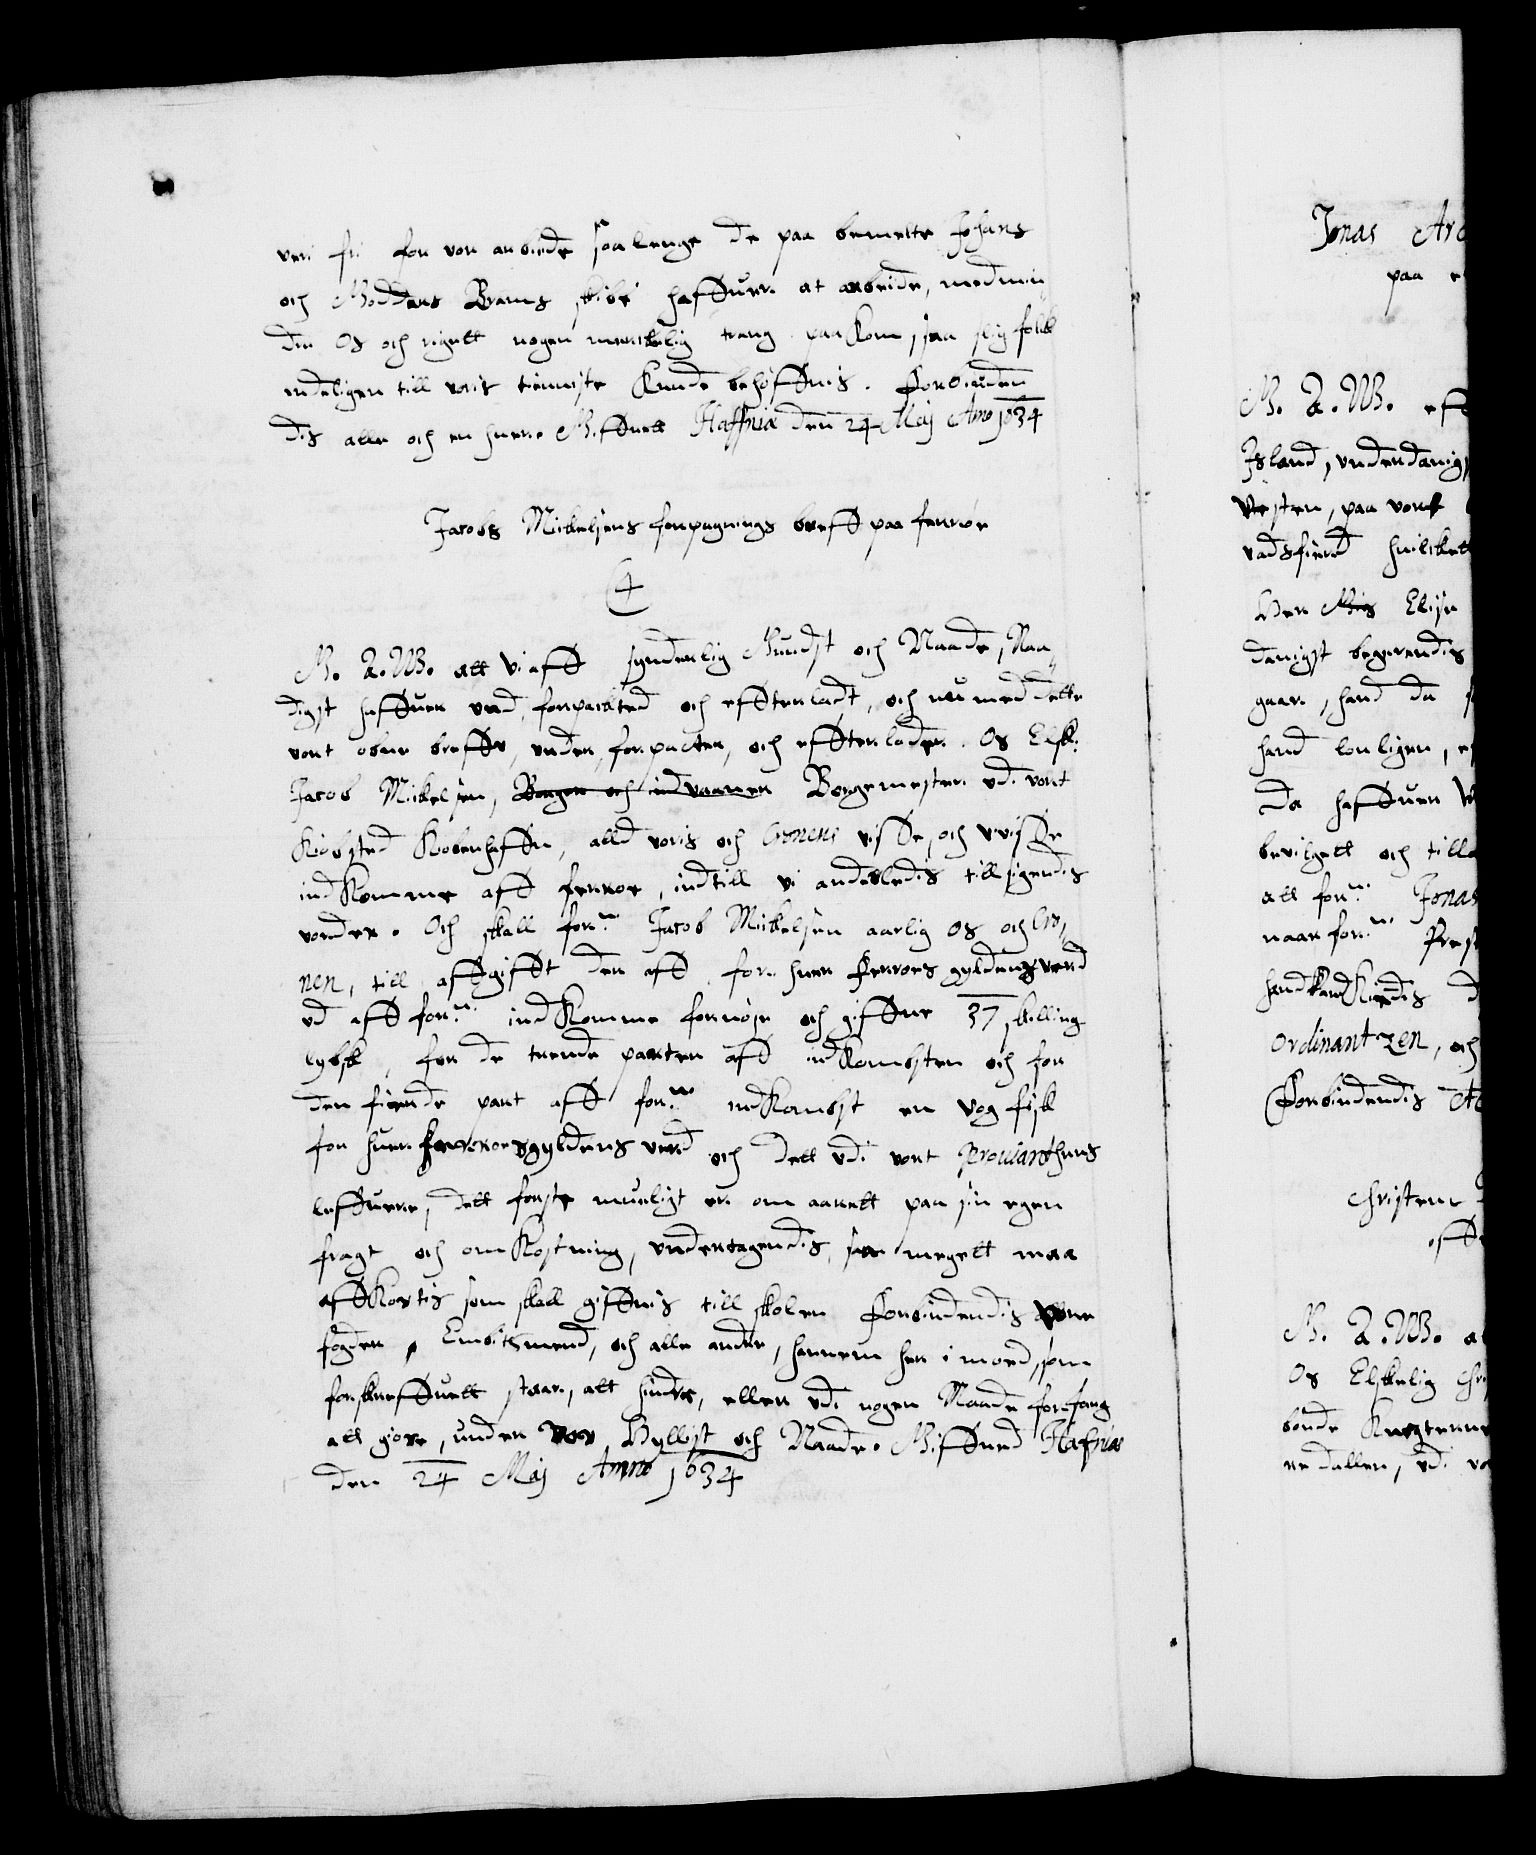 veri fri for vor arbeide saa lenge de paa bemelte Johans
och Godskes Brams skibe haffuer at arbeide, medmin
dre Os och rigett nogen merckelig trang paa Kom, saa slig folk
endeligen till voris tieniste Kunde behøffuis. Forbiuden
dis alle och en huer. Giffuett Haffniæ den 24 Maij Anno 1634
Jacobs Mickelsens forpagtnings breff paa ferrøe
C4
G. A. W. att Vi aff synderlig Gundst och Naade, Naa
digst haffuer vnd, forpackted och effterladt, och nu med dette
vort obne breffue, vnder, forpacter, och effterlader. Os Elsk:
Jacob Mickelsen, Borger och indvaaner Borgemester udi vort
Kiøbsted Kiøbenhaffn, alld voris och Cronens visse, och uvisse
indkomme aff ferrøe, indtill vi anderledis tillsigendis
vorder. Och skall forne Jacob Mickelsen aarlig os och Cro
nen, till affgifft der aff for huer ferrøes gyldens verd
ud aff forne indkomme fornøje och giffue 37 skilling
lybsk, for de trende parter aff indkombsten och for
den fierde part aff forne indkombst en vog fisk
for huer ferrøesgyldens verd och dett udi vort Prouianthus
leffuere, dett første mueligt er om aarett paa sin egen
fragt och omkostning, undertagendis, saa megett maa
affkortis som skall giffuis till skolen Forbiudendis vore
fogder, Embitsmend, och alle andre, hannem her i mod, som
forskreffuett staar, att hindre, eller udi nogen Maade forfang
att giøre, under vor Hyllist och Naade. Giffued Hafniæ
den 24 Maij Anno 1634
Jonas Ar
paa
G. A. W.
Island, underdanigs
vesten, paa vort
vadsfiord huilckett
Her Mis Elise
danigst begierendis
gaar, hand da
hand louligen,
Da haffuer
bevilgett och tilla
att forne Jonas
naar forne Prest
Ordinantzen, och
Forbiudendis
Christen
G. A. W. a
Os Elskelig Chri